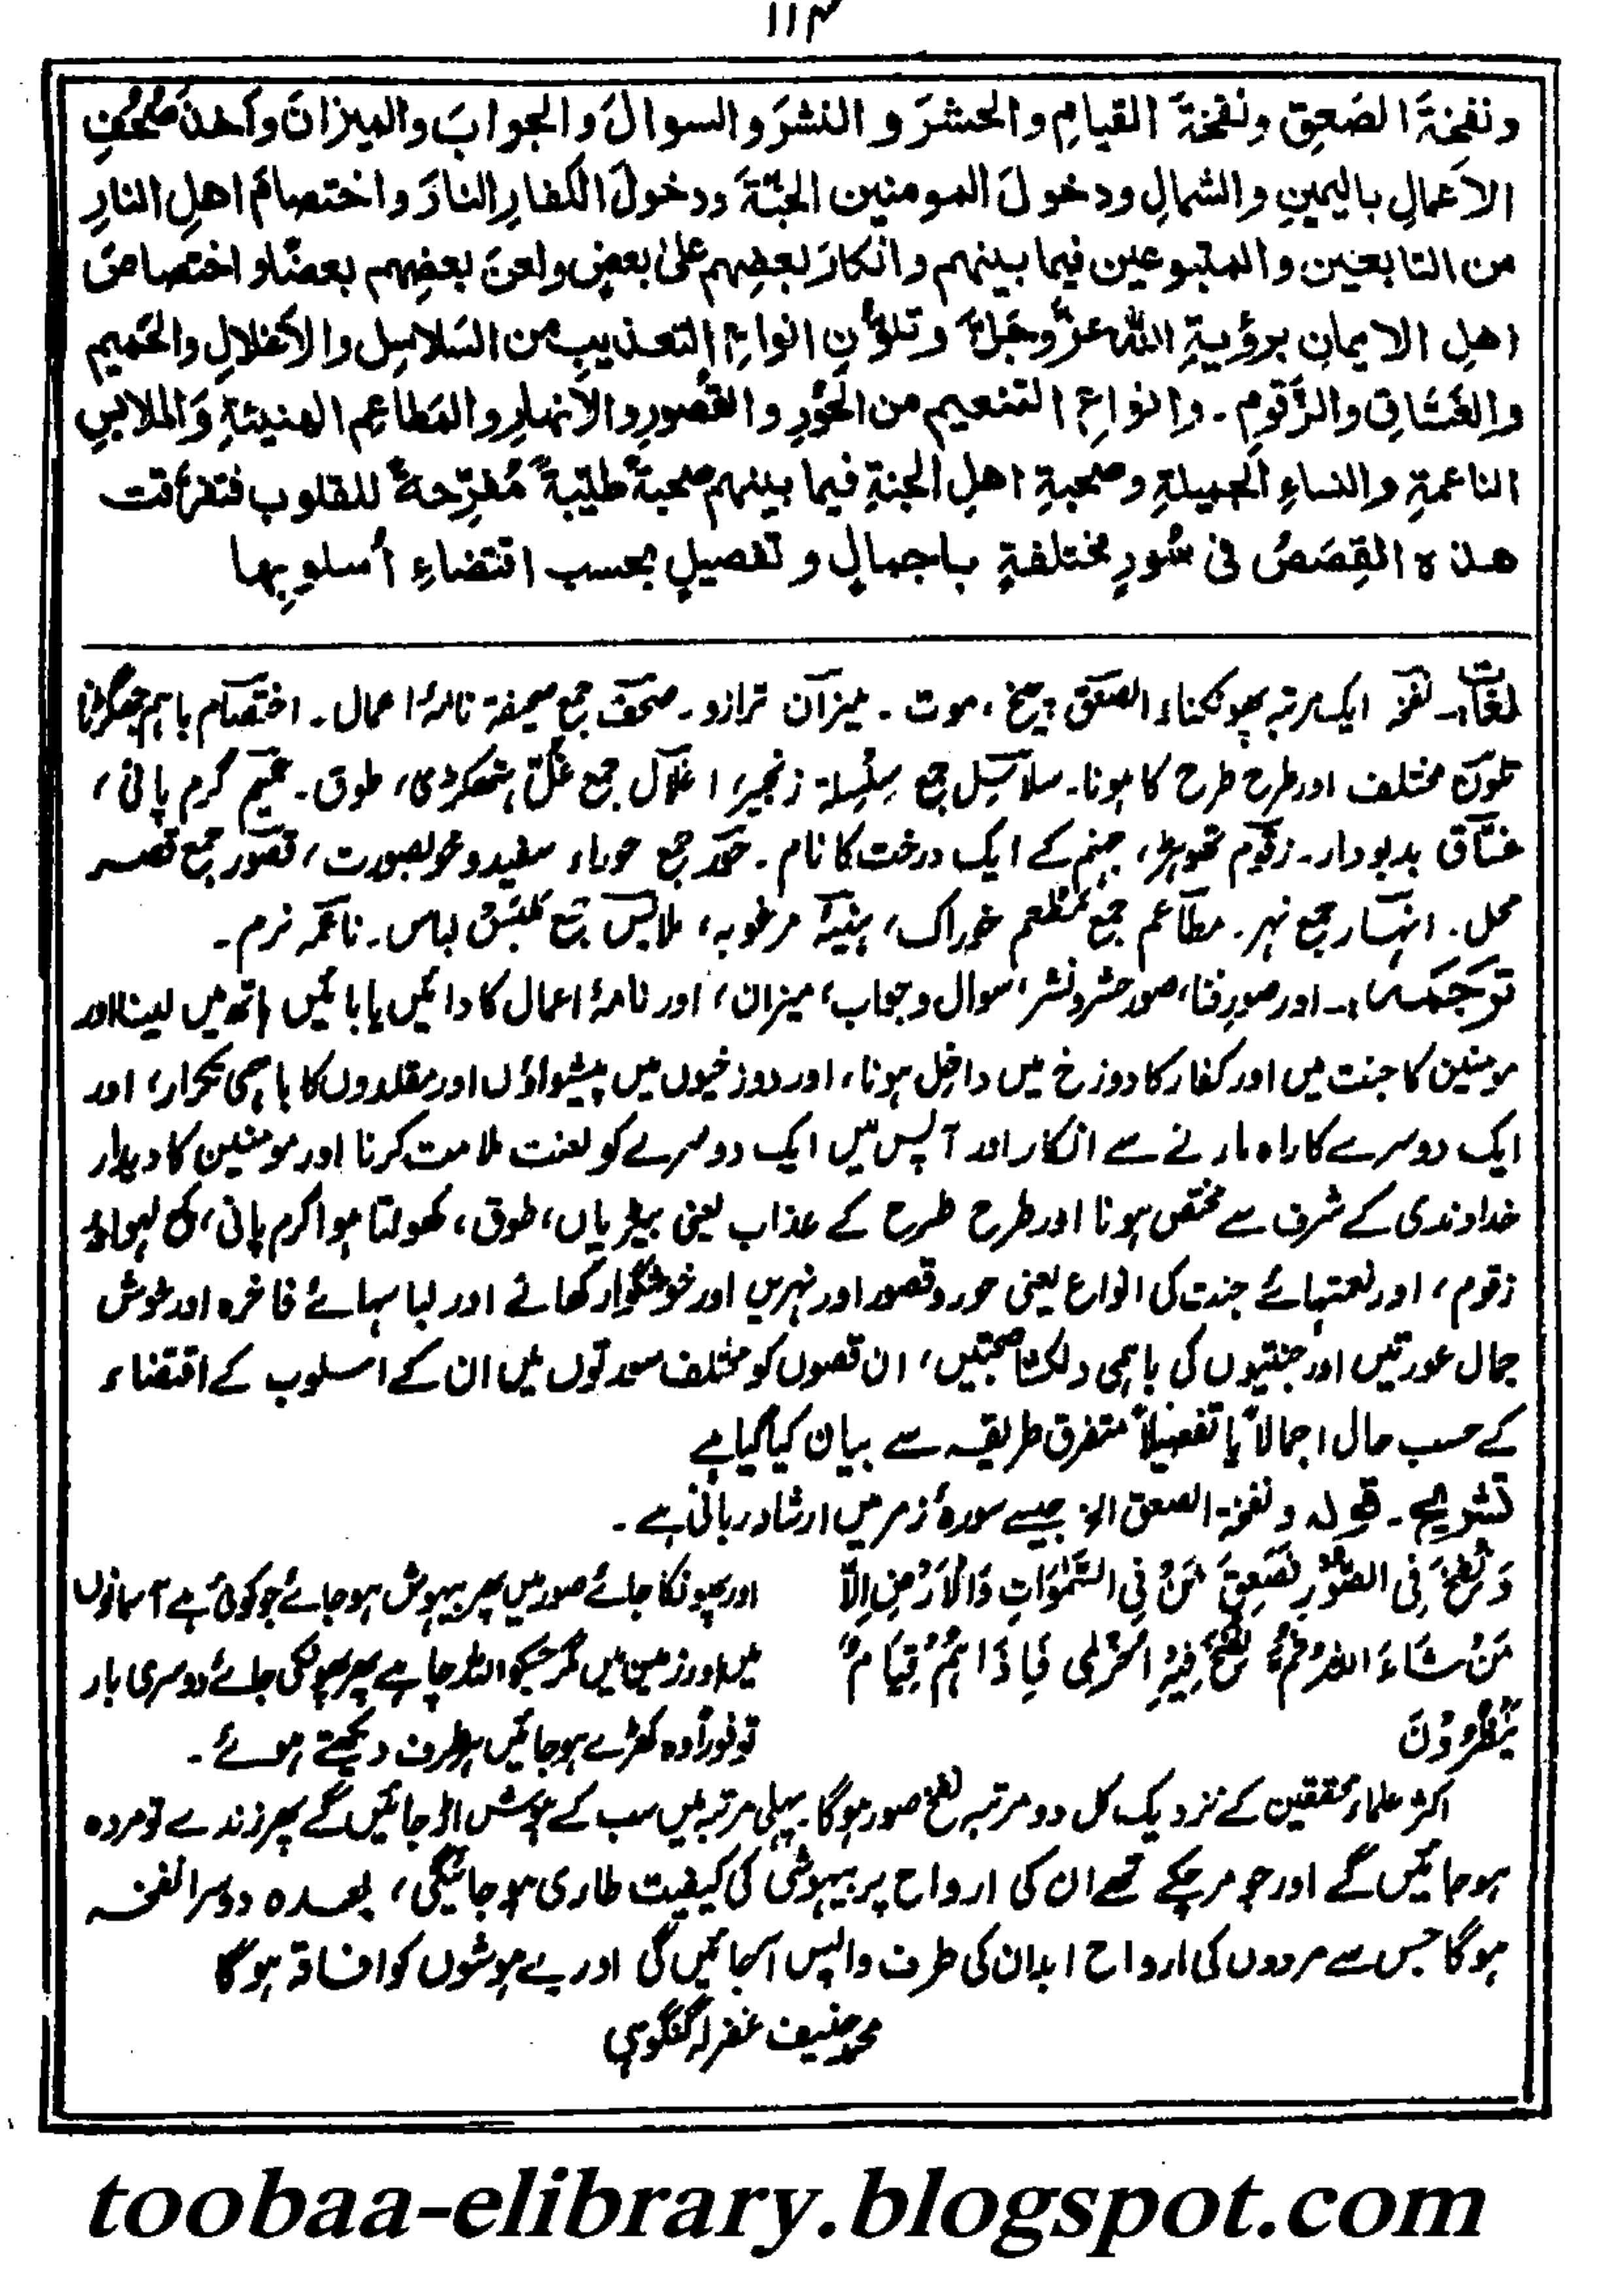 ۱۱۴
ونفخةَ الصَعِقِ ونفخةَ القيامِ والحشرَ و النشرَ والسوالَ والجوابَ والميزانَ وأخذَ صُحُفِ
الاَعمالِ باليمينِ والشمالِ ودخولَ المومنين الجنّةَ ودخولَ الكفارِ النارَ واختصامَ اهلِ النارِ
من التابعين والمتبوعين فيما بينهم وانكارَ بعضِهم علىٰ بعضٍ ولعنَ بعضِهم بعضًا واختصاصَ
اهلِ الايمانِ برؤيةِ اللّٰه عزَّ وجَلَّ وتلوُّنِ انواعِ التعذيبِ من السَلاسِلِ والاَغلالِ والحَمِيم
والغَسَّاقِ والزَّقومِ ـ وانواعِ التنعيم من الحُورِ و القُصورِ والاَنهارِ والمَطاعِم الهنيئةِ وَالملابسِ
الناعمةِ والنساءِ الجميلةِ وصحبةِ اهلِ الجنةِ فيما بينهم صحبةً طيّبةً مُفَرِّحةً للقلوب فتفرّقت
هذه القِصَصُ فی سُورٍ مختلفةٍ باجمالٍ و تفصيلٍ بحسب اقتضاءِ أسلوبِها
لغات:۔ نفخہ ایک مرتبہ پھونکنا، الصعق چیخ، موت ۔ میزان ترازو۔ صحف جمع صحیفۃ نامۂ اعمال ۔ اختصام باہم جھگڑنا
تلون مختلف اور طرح طرح کا ہونا۔ سلاسل جمع سِلْسِلۃ زنجیر، اغلال جمع غُلّ ہتھکڑی، طوق ۔ حمیم گرم پانی،
غسّاق بدبودار۔ زقوم تھوہڑ، جہنم کے ایک درخت کا نام ۔ حور جمع حوراء سفید و خوبصورت، قصور جمع قصر
محل ۔ انہار جمع نہر ۔ مطاعم جمع مَطْعَم خوراک، ہنیئۃ مرغوبہ، ملابس جمع مَلْبَس لباس ۔ ناعمہ نرم ۔
ترجمہ:۔ اور صورِ فنا، صور حشر و نشر، سوال و جواب، میزان، اور نامۂ اعمال کا دائیں یا بائیں ہاتھ میں لینا اور
مومنین کا جنت میں اور کفار کا دوزخ میں داخل ہونا، اور دوزخیوں میں پیشواؤں اور مقلدوں کا باہمی تکرار، اور
ایک دوسرے کا راہ مارنے سے انکار اور آپس میں ایک دوسرے کو لعنت ملامت کرنا اور مومنین کا دیدار
خداوندی کے شرف سے مختص ہونا اور طرح طرح کے عذاب یعنی بیڑیاں، طوق، کھولتا ہوا گرم پانی، کچ لہو اور
زقوم، اور نعمتہائے جنت کی انواع یعنی حور و قصور اور نہریں اور خوشگوار کھانے اور لباسہائے فاخرہ اور خوش
جمال عورتیں اور جنتیوں کی باہمی دلکشا صحبتیں، ان قصوں کو مختلف سورتوں میں ان کے اسلوب کے اقتضاء
کے حسب حال اجمالاً یا تفصیلاً متفرق طریقہ سے بیان کیا گیا ہے
تشریح ۔ قولہ ونفخۃ الصعق الخ جیسے سورۂ زمر میں ارشاد ربانی ہے ۔
وَنُفِخَ فِی الصُّوْرِ فَصَعِقَ مَنْ فِی السَّمٰوَاتِ وَالْاَرْضِ اِلَّا
مَنْ شَاءَ اللّٰہُ ثُمَّ نُفِخَ فِیْہِ اُخْرٰی فَاِذَا ہُمْ قِیَامٌ
یَّنْظُرُوْنَ
اور پھونکا جائے صور میں پھر بیہوش ہو جائے جو کوئی ہے آسمانوں
میں اور زمین میں مگر جسکو اللہ چاہے پھر پھونکی جائے دوسری بار
تو فوراً وہ کھڑے ہو جائیں ہر طرف دیکھتے ہوئے ۔
اکثر علماء محققین کے نزدیک کل دو مرتبہ نفخ صور ہوگا پہلی مرتبہ میں سب کے ہوش اڑ جائیں گے پھر زندے تو مردہ
ہو جائیں گے اور جو مر چکے تھے ان کی ارواح پر بیہوشی کی کیفیت طاری ہو جائیگی، بعدہ دوسرا نفخہ
ہوگا جس سے مردوں کی ارواح ابدان کی طرف واپس آ جائیں گی اور بے ہوشوں کو افاقہ ہوگا
محمد حنیف غفرلہ گنگوہی
toobaa-elibrary.blogspot.com